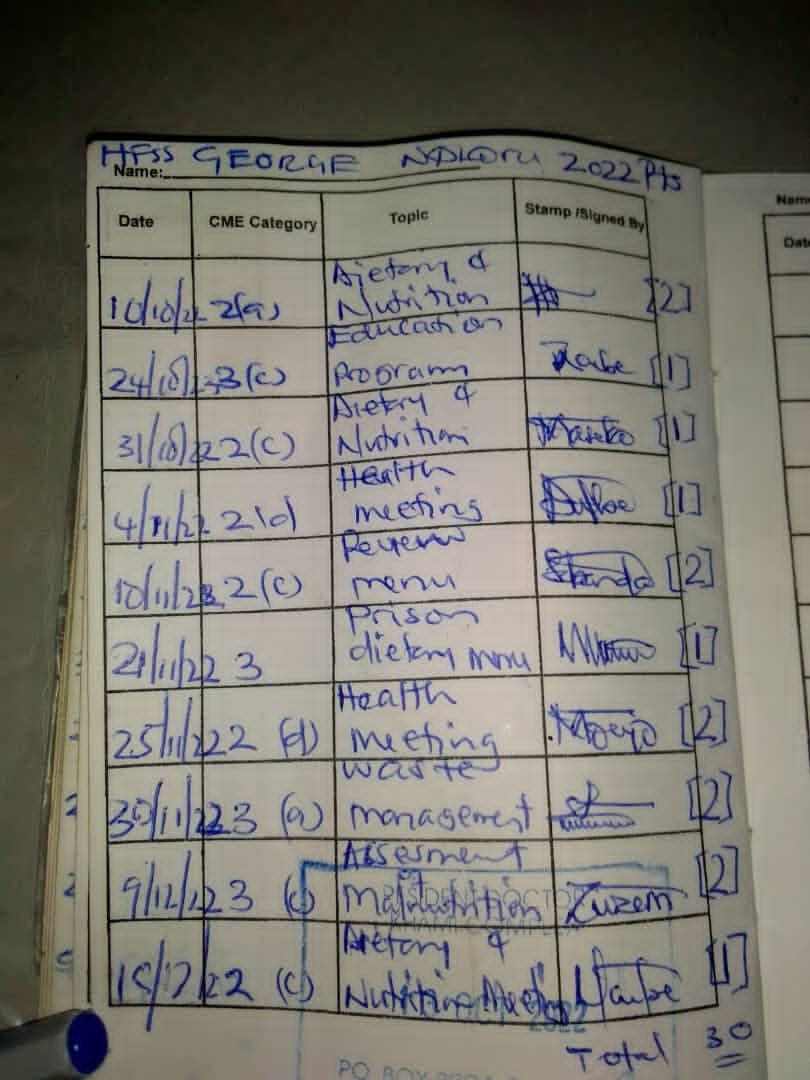 HFSS GEORGE 2022 Pts
Name:
Date CME Category Topic Stamp /Signed By
10/10/22 2(a) Dietary & Nutrition [2]
24/10/22 3(c) Education Program [1]
31/10/22 2(c) Dietry & Nutrition [1]
4/11/22 2(d) Health meeting [1]
10/11/22 2(c) Review menu [2]
21/11/22 3 Prison dietary menu [1]
25/11/22 2 (d) Health meeting Moeyo [2]
30/11/22 3 (a) waste management [2]
9/12/22 3 (c) Assesment Malnutrition [2]
15/12/22 2 (c) Dietary & Nutrition Meeting [1]
2022
Total 30
PO BOX
Name
Date